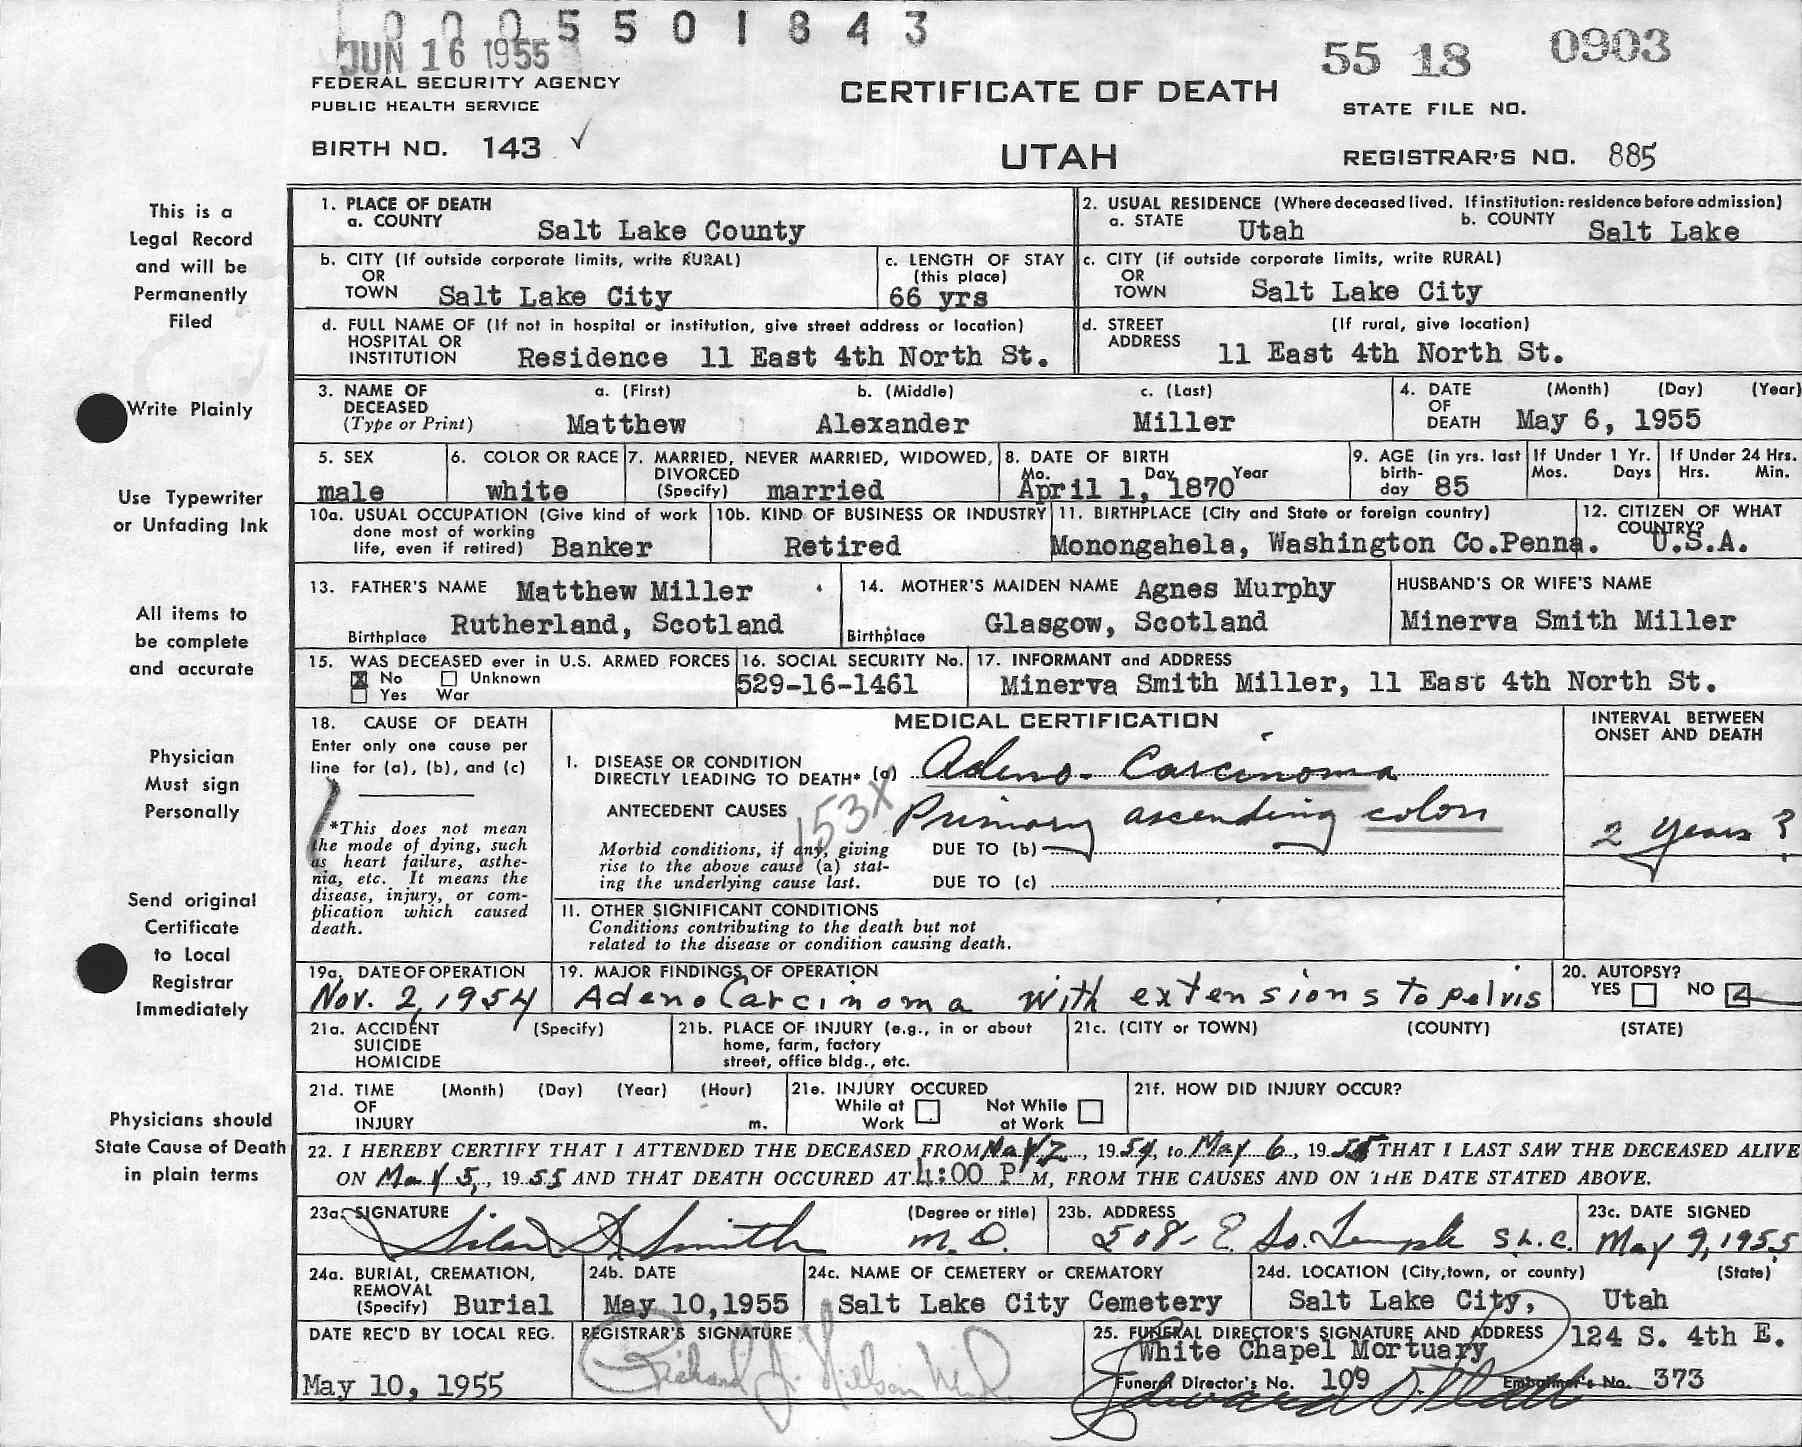 0005501843
JUN 16 1955
55 18 0903
FEDERAL SECURITY AGENCY
PUBLIC HEALTH SERVICE
CERTIFICATE OF DEATH
STATE FILE NO.
BIRTH NO. 143 ✓
UTAH
REGISTRAR'S NO. 885
This is a
Legal Record
and will be
Permanently
Filed
Write Plainly
Use Typewriter
or Unfading Ink
All items to
be complete
and accurate
Physician
Must sign
Personally
Send original
Certificate
to Local
Registrar
Immediately
Physicians should
State Cause of Death
in plain terms
1. PLACE OF DEATH
a. COUNTY Salt Lake County
2. USUAL RESIDENCE (Where deceased lived. If institution: residence before admission)
a. STATE Utah b. COUNTY Salt Lake
b. CITY (If outside corporate limits, write RURAL)
OR
TOWN Salt Lake City
c. LENGTH OF STAY
(this place)
66 yrs
c. CITY (if outside corporate limits, write RURAL)
OR
TOWN Salt Lake City
d. FULL NAME OF (If not in hospital or institution, give street address or location)
HOSPITAL OR
INSTITUTION Residence 11 East 4th North St.
d. STREET (If rural, give location)
ADDRESS 11 East 4th North St.
3. NAME OF a. (First) b. (Middle) c. (Last)
DECEASED
(Type or Print) Matthew Alexander Miller
4. DATE (Month) (Day) (Year)
OF
DEATH May 6, 1955
5. SEX
male
6. COLOR OR RACE
white
7. MARRIED, NEVER MARRIED, WIDOWED,
DIVORCED
(Specify) married
8. DATE OF BIRTH
Mo. Day Year
April 1, 1870
9. AGE (in yrs. last
birth-
day 85
If Under 1 Yr.
Mos. Days
If Under 24 Hrs.
Hrs. Min.
10a. USUAL OCCUPATION (Give kind of work
done most of working
life, even if retired) Banker
10b. KIND OF BUSINESS OR INDUSTRY
Retired
11. BIRTHPLACE (City and State or foreign country)
Monongahela, Washington Co.Penna.
12. CITIZEN OF WHAT
COUNTRY?
U.S.A.
13. FATHER'S NAME Matthew Miller
Birthplace Rutherland, Scotland
14. MOTHER'S MAIDEN NAME Agnes Murphy
Birthplace Glasgow, Scotland
HUSBAND'S OR WIFE'S NAME
Minerva Smith Miller
15. WAS DECEASED ever in U.S. ARMED FORCES
No Unknown
Yes War
16. SOCIAL SECURITY No.
529-16-1461
17. INFORMANT and ADDRESS
Minerva Smith Miller, 11 East 4th North St.
18. CAUSE OF DEATH
Enter only one cause per
line for (a), (b), and (c)
*This does not mean
the mode of dying, such
as heart failure, asthe-
nia, etc. It means the
disease, injury, or com-
plication which caused
death.
MEDICAL CERTIFICATION
INTERVAL BETWEEN
ONSET AND DEATH
I. DISEASE OR CONDITION
DIRECTLY LEADING TO DEATH* (a) Adeno-Carcinoma
ANTECEDENT CAUSES 153X Primary ascending colon
2 years ?
Morbid conditions, if any, giving
rise to the above cause (a) stat-
ing the underlying cause last.
DUE TO (b)
DUE TO (c)
II. OTHER SIGNIFICANT CONDITIONS
Conditions contributing to the death but not
related to the disease or condition causing death.
19a. DATE OF OPERATION
Nov. 2, 1954
19. MAJOR FINDINGS OF OPERATION
AdenoCarcinoma with extensions to pelvis
20. AUTOPSY?
YES NO
21a. ACCIDENT (Specify)
SUICIDE
HOMICIDE
21b. PLACE OF INJURY (e.g., in or about
home, farm, factory
street, office bldg., etc.
21c. (CITY or TOWN) (COUNTY) (STATE)
21d. TIME (Month) (Day) (Year) (Hour)
OF
INJURY m.
21e. INJURY OCCURED
While at Not While
Work at Work
21f. HOW DID INJURY OCCUR?
22. I HEREBY CERTIFY THAT I ATTENDED THE DECEASED FROM 2, 1954, to May 6, 1955 THAT I LAST SAW THE DECEASED ALIVE
ON May 5, 1955 AND THAT DEATH OCCURED AT 4:00 P M, FROM THE CAUSES AND ON THE DATE STATED ABOVE.
23a. SIGNATURE (Degree or title)
Silas S. Smith M.D.
23b. ADDRESS
508- E. So. Temple S.L.C.
23c. DATE SIGNED
May 9, 1955
24a. BURIAL, CREMATION,
REMOVAL
(Specify) Burial
24b. DATE
May 10,1955
24c. NAME OF CEMETERY or CREMATORY
Salt Lake City Cemetery
24d. LOCATION (City,town, or county) (State)
Salt Lake City, Utah
DATE REC'D BY LOCAL REG.
May 10, 1955
REGISTRAR'S SIGNATURE
Richard J. Nelson M.D.
25. FUNERAL DIRECTOR'S SIGNATURE AND ADDRESS 124 S. 4th E.
White Chapel Mortuary
Funeral Director's No. 109 Embalmer's No. 373
Edward